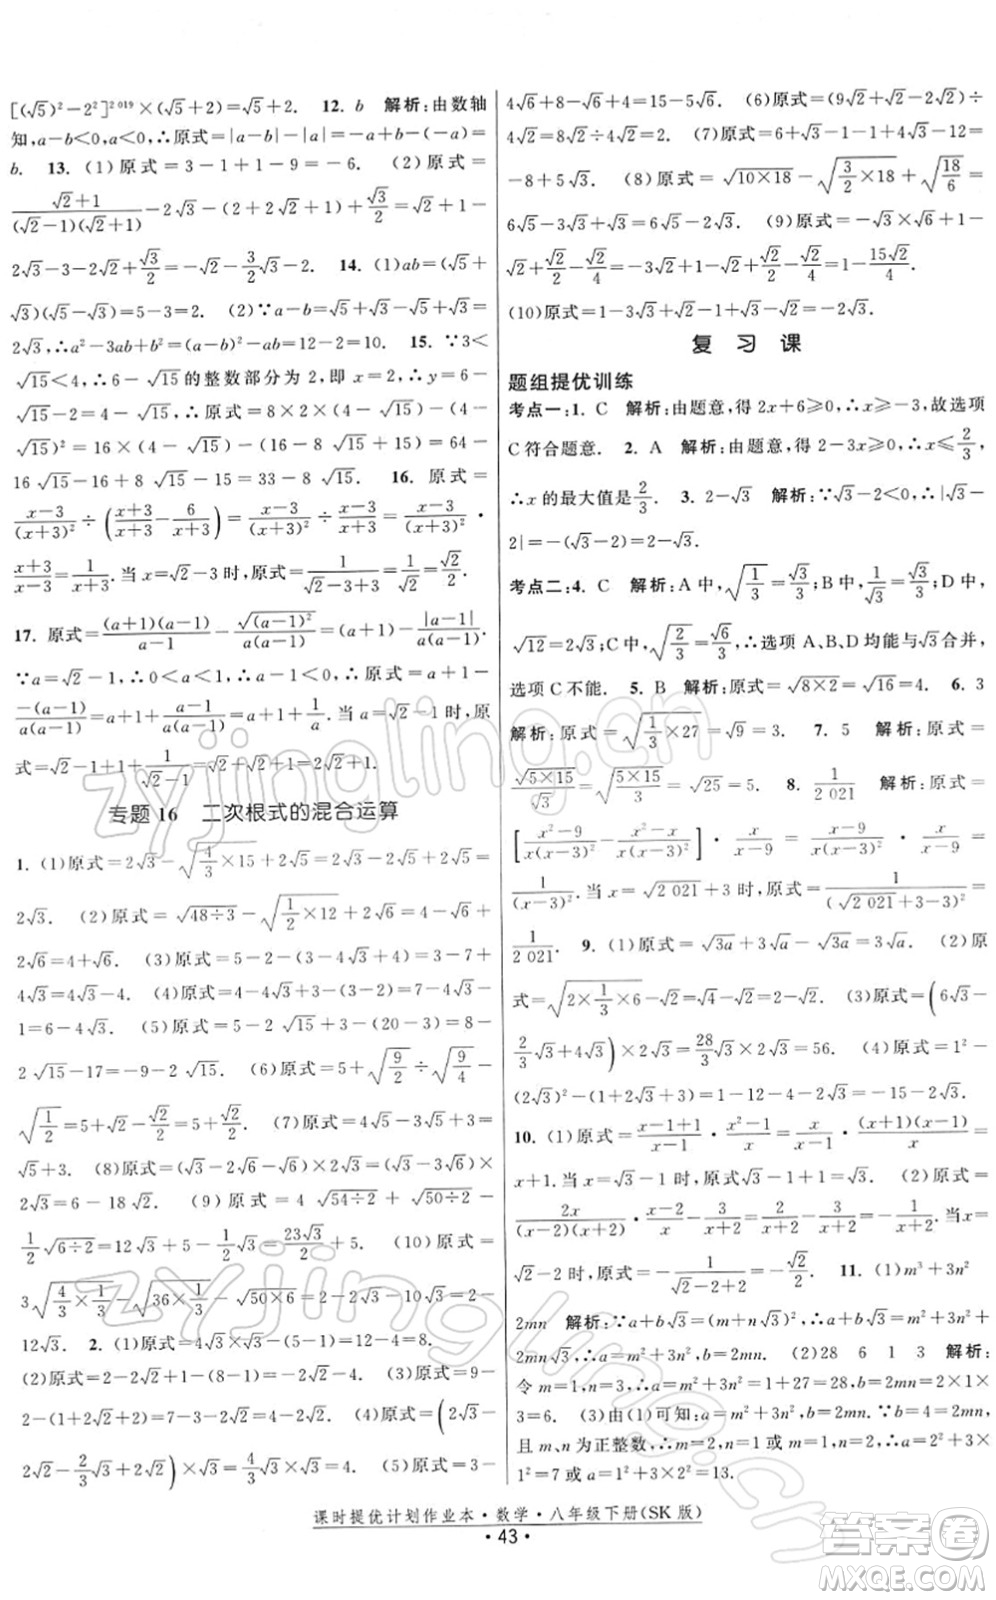 [(√5)²－2²]²⁰¹⁹×(√5+2)=√5+2.　12. b　解析:由数轴
知,a－b<0,a<0,∴原式=|a－b|－|a|=－a+b－(－a)=
b.　13. (1)原式=3－1+1－9=－6.　(2)原式=
(√2+1)/((√2－1)(√2+1))－2√3－(2+2√2+1)+√3/2=√2+1－
2√3－3－2√2+√3/2=－√2－3/2√3－2.　14. (1)ab=(√5+
√3)(√5－√3)=5－3=2.　(2)∵a－b=√5+√3－√5+√3=
2√3,∴a²－3ab+b²=(a－b)²－ab=12－2=10.　15. ∵3<
√15<4,∴√15的整数部分为2,即x=2,∴y=6－
√15－2=4－√15,∴原式=8×2×(4－√15)－(4－
√15)²=16×(4－√15)－(16－8√15+15)=64－
16√15－16+8√15－15=33－8√15.　16. 原式=
(x－3)/(x+3)²÷((x+3)/(x+3)－6/(x+3))=(x－3)/(x+3)²÷(x－3)/(x+3)=(x－3)/(x+3)²·
(x+3)/(x－3)=1/(x+3).当x=√2－3时,原式=1/(√2－3+3)=1/√2=√2/2.
17. 原式=(a+1)(a－1)/(a－1)－√(a－1)²/(a(a－1))=(a+1)－|a－1|/(a(a－1)).
∵a=√2－1,∴0<a<1,∴a－1<0,∴原式=a+1－
－(a－1)/(a(a－1))=a+1+(a－1)/(a(a－1))=a+1+1/a.当a=√2－1时,原
式=√2－1+1+1/(√2－1)=√2+√2+1=2√2+1.
专题16　二次根式的混合运算
1. (1)原式=2√3－√(4/3×15)+2√5=2√3－2√5+2√5=
2√3.　(2)原式=√(48÷3)－√(1/2×12)+2√6=4－√6+
2√6=4+√6.　(3)原式=5－2－(3－4√3+4)=3－7+
4√3=4√3－4.　(4)原式=4－4√3+3－(3－2)=7－4√3－
1=6－4√3.　(5)原式=5－2√15+3－(20－3)=8－
2√15－17=－9－2√15.　(6)原式=5+√(9/2)÷√9－
√(1/2)=5+√2/2－√2/2=5.　(7)原式=4√5－3√5+3=
√5+3.　(8)原式=(√3－2√6－√3)×2√3=－2√6×
2√3=－18√2.　(9)原式=4√(54÷2)+√(50÷2)－
1/2√(6÷2)=12√3+5－1/2√3=23√3/2+5.　(10)原式=
3√(4/3×1/3)－√(36×1/3)－√(50×6)=2－2√3－10√3=2－
12√3.　2. (1)原式=4√3×√3－4=12－4=8.
(2)原式=2－4√2+4+4√2=6.　(3)原式=9－
2－(1+2√2+2)=4－2√2.　(4)原式=(2√3－
2√2－2/3√3+2√2)×√3=4/3√3×√3=4.　(5)原式=3－
4√6+8－√6+4=15－5√6.　(6)原式=(9√2+√2－2√2)÷
4√2=8√2÷4√2=2.　(7)原式=6√3－1－1+4√3－12=
－8+5√3.　(8)原式=√(10×18)－√(3/2×18)+√(18/6)=
6√5－3√3+√3=6√5－2√3.　(9)原式=－√3×√6+1－
√2+√2/4=－3√2+1－√2+√2/4=1－15√2/4.
(10)原式=1－3√3+2√3－1－√3+1－√2－1=－2√3－√2.
复习课
题组提优训练
考点一:1. C　解析:由题意,得2x+6≥0,∴x≥－3,故选项
C符合题意.　2. A　解析:由题意,得2－3x≥0,∴x≤2/3,
∴x的最大值是2/3.　3. 2－√3　解析:∵√3－2<0,∴|√3－
2|=－(√3－2)=2－√3.
考点二:4. C　解析:A中,√(1/3)=√3/3;B中,1/√3=√3/3;D中,
√12=2√3;C中,√(2/3)=√6/3,∴选项A、B、D均能与√3合并,
选项C不能.　5. B　解析:原式=√(8×2)=√16=4.　6. 3
解析:原式=√(1/3×27)=√9=3.　7. 5　解析:原式=
√(5×15)/√3=√(5×15/3)=√25=5.　8. 1/2021　解析:原式=
[(x²－9)/(x(x－3)²)－(x²－x)/(x(x－3)²)]·x/(x－9)=(x－9)/(x(x－3)²)·x/(x－9)=
1/(x－3)².当x=√2021+3时,原式=1/(√2021+3－3)²=
1/2021.　9. (1)原式=√3a+3√3a－√3a=3√3a.　(2)原
式=√(2×1/3×6)－√2=√4－√2=2－√2.　(3)原式=(6√3－
2/3√3+4√3)×2√3=28/3√3×2√3=56.　(4)原式=1²－
(2√3)²－(1－2√3+3)=1－12－4+2√3=－15+2√3.
10. (1)原式=(x－1+1)/(x－1)·(x²－1)/x=x/(x－1)·(x+1)(x－1)/x=
x+1.当x=√3－1时,原式=√3－1+1=√3.　(2)原式=
2x/((x－2)(x+2))·(x－2)/x－3/(x+2)=2/(x+2)－3/(x+2)=－1/(x+2).当x=
√2－2时,原式=－1/(√2－2+2)=－√2/2.　11. (1)m²+3n²
2mn　解析:∵a+b√3=(m+n√3)²=m²+3n²+
2mn√3,∴a=m²+3n²,b=2mn.　(2)28　6　1　3　解析:
令m=1,n=3,∴a=m²+3n²=1+27=28,b=2mn=2×1×
3=6.　(3)由(1)可知:a=m²+3n²,b=2mn,∵b=4=2mn,
且m、n为正整数,∴m=2,n=1或m=1,n=2,∴a=2²+3×
1²=7或a=1²+3×2²=13.
课时提优计划作业本·数学·八年级下册(SK版)
·43·
zyjingling.cn
zyjingling.cn
答案圈
MXQE.COM